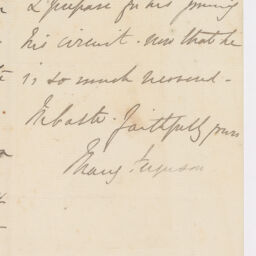 & prepare for his joining
his circuit - now that he
is so much
In haste. Faithfully yours
Mary Ferguson